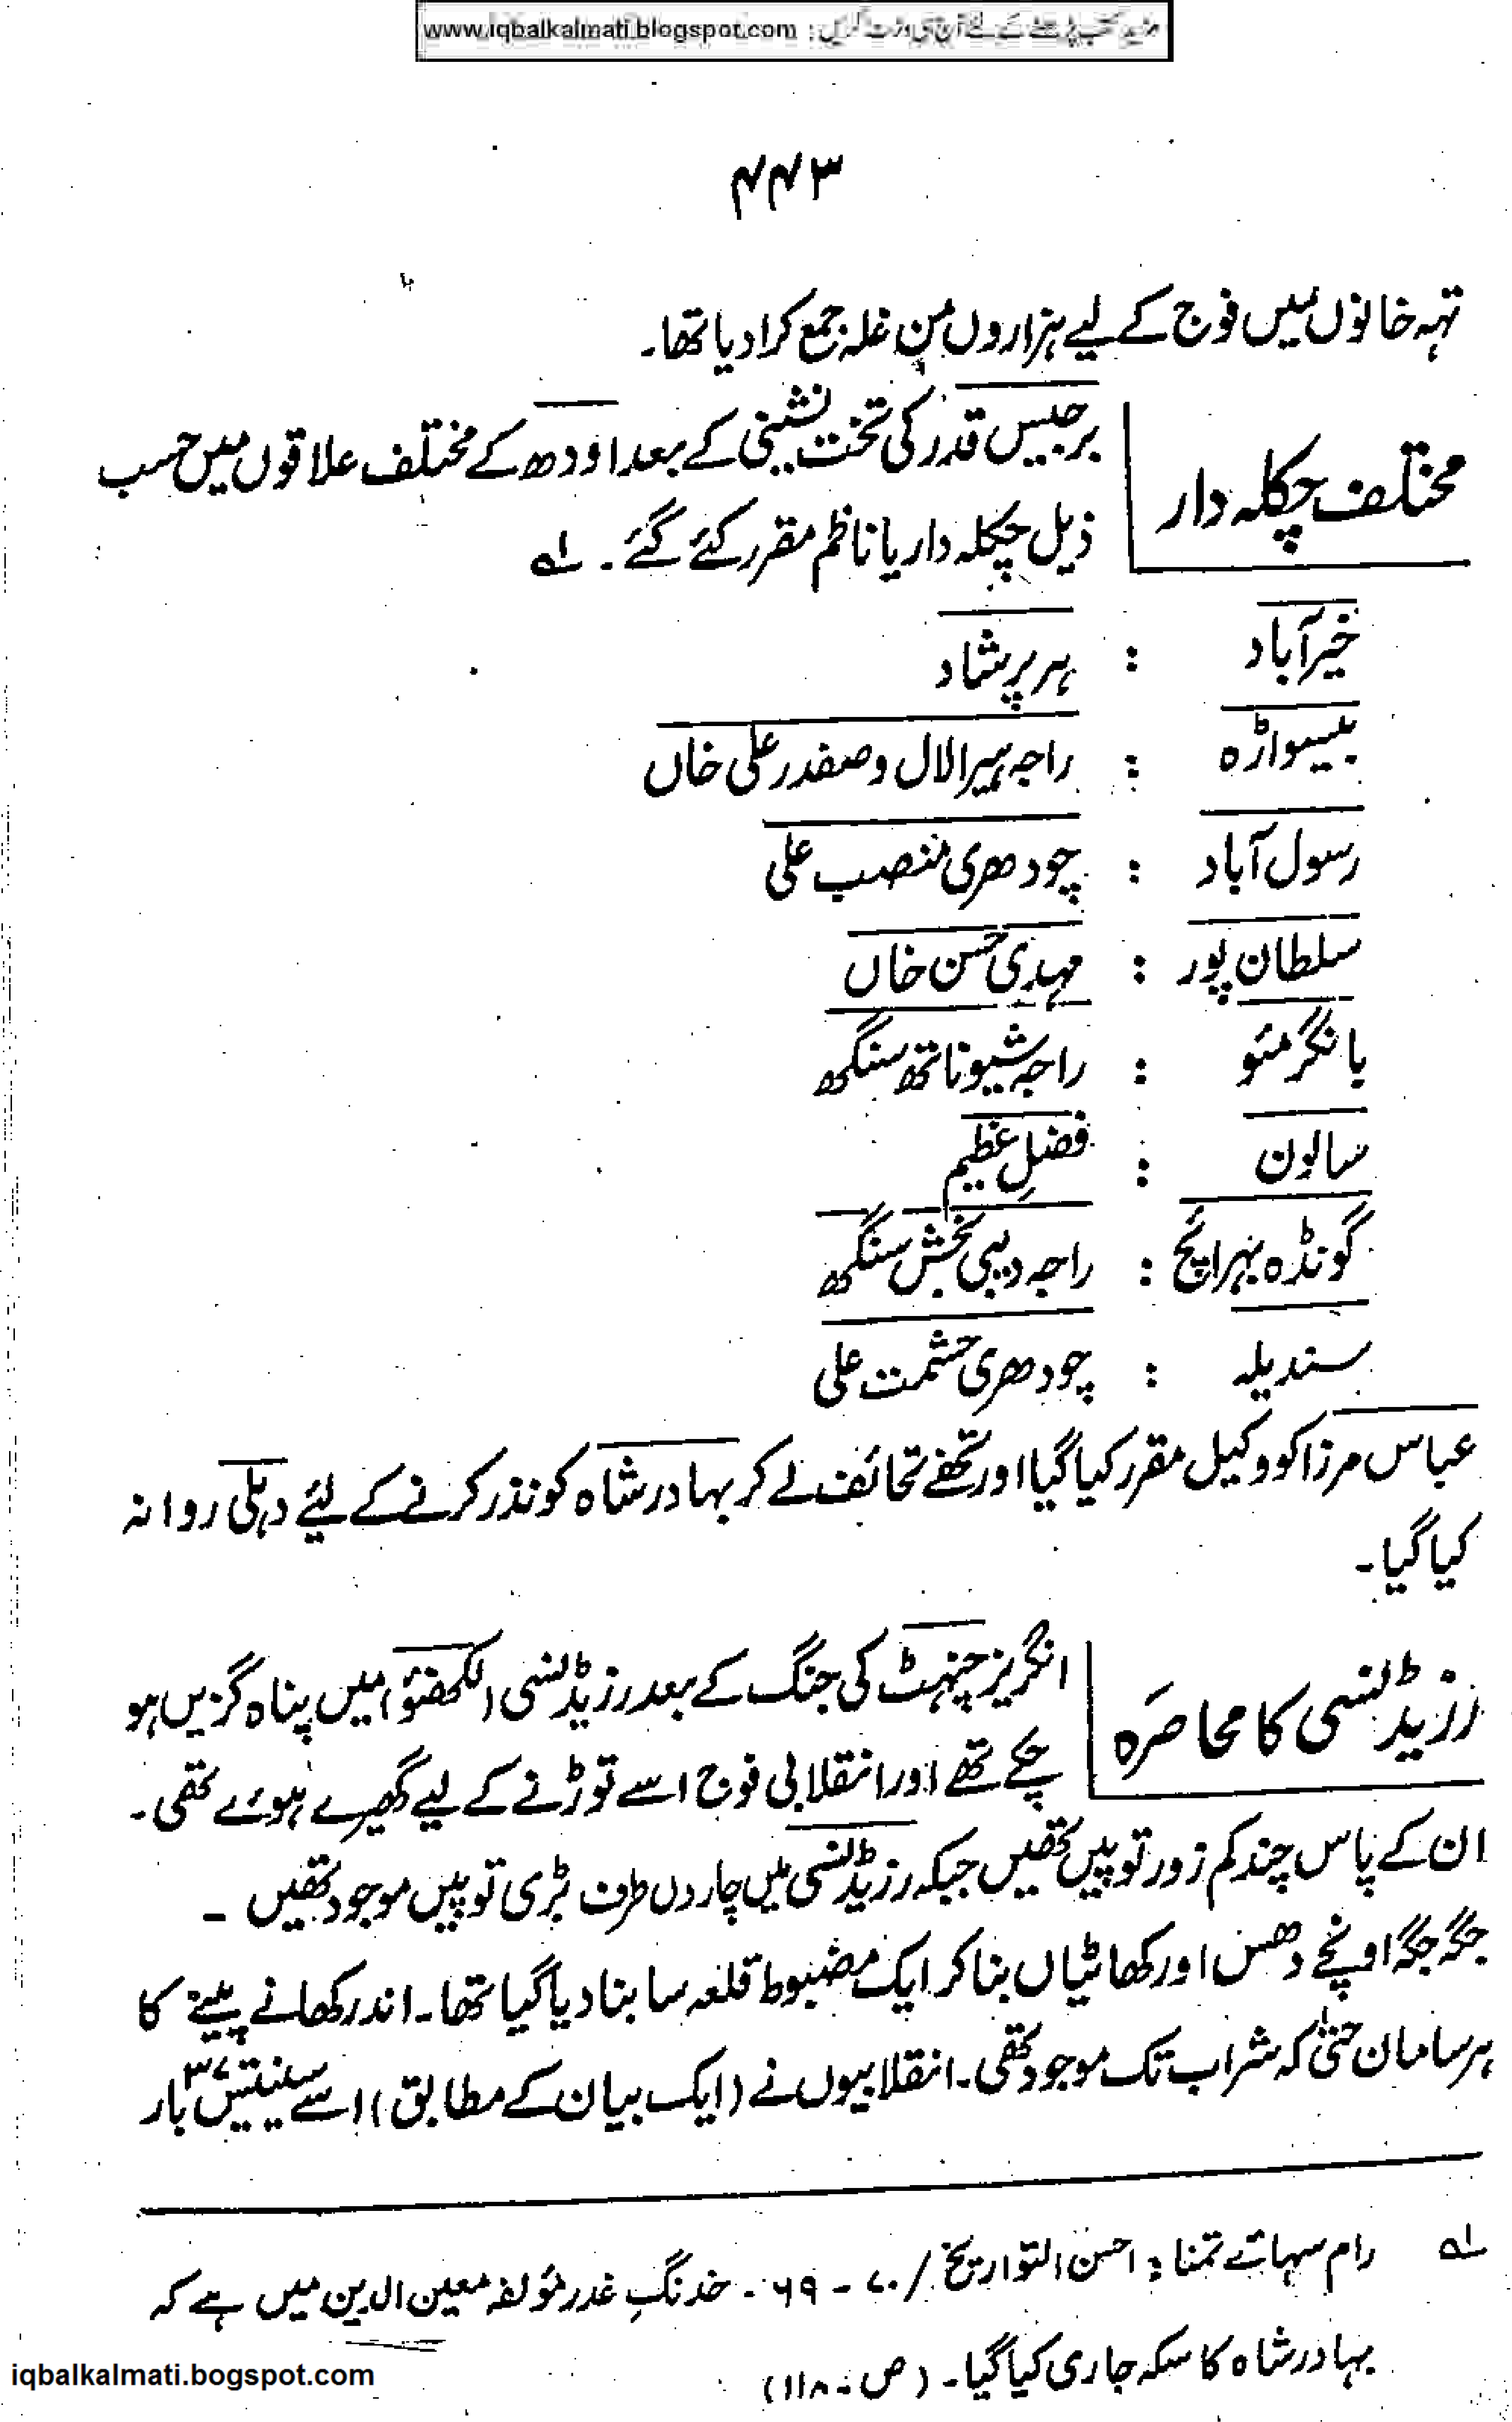 www.iqbalkalmati.blogspot.com : مزید کتب پڑھنے کے لئے آج ہی وزٹ کریں
۴۴۳
تہہ خانوں میں فوج کے لیے ہزاروں من غلہ جمع کرا دیا تھا۔
مختلف چکلہ دار
برجیس قدر کی تخت نشینی کے بعد اودھ کے مختلف علاقوں میں حسب
ذیل چکلہ دار یا ناظم مقرر کئے گئے۔ ؎۱
خیرآباد : ہر پرشاد
بیسواڑہ : راجہ ہیرا لال و صفدر علی خاں
رسول آباد : چودھری منصب علی
سلطان پور : مہدی حسن خاں
بانگرمئو : راجہ شیوناتھ سنگھ
سالون : فضلِ عظیم
گونڈہ بہرائچ : راجہ دیبی بخش سنگھ
سندیلہ : چودھری حشمت علی
عباس مرزا کو وکیل مقرر کیا گیا اور تحفے تحائف لے کر بہادر شاہ کو نذر کرنے کے لئے دہلی روانہ
کیا گیا۔
رزیڈنسی کا محاصَرہ
انگریز چنہٹ کی جنگ کے بعد رزیڈنسی (لکھنؤ) میں پناہ گزیں ہو
چکے تھے اور انقلابی فوج اسے توڑنے کے لیے گھیرے ہوئے تھی۔
ان کے پاس چند کم زور توپیں تھیں جبکہ رزیڈنسی میں چاروں طرف بڑی توپیں موجود تھیں ۔
جگہ جگہ اونچے دھس اور کھائیاں بنا کر ایک مضبوط قلعہ سا بنا دیا گیا تھا۔ اندر کھانے پینے کا
ہر سامان حتیٰ کہ شراب تک موجود تھی۔ انقلابیوں نے (ایک بیان کے مطابق) اسے سینتیس ۳۷ بار
؎۱ رام سہائے تمنا : احسن التواریخ / ۷۰ ۔ ۶۹ ۔ خدنگِ غدر مؤلفہ معین الدین میں ہے کہ
بہادر شاہ کا سکہ جاری کیا گیا۔ (ص ۔ ۱۱۸)
iqbalkalmati.bogspot.com